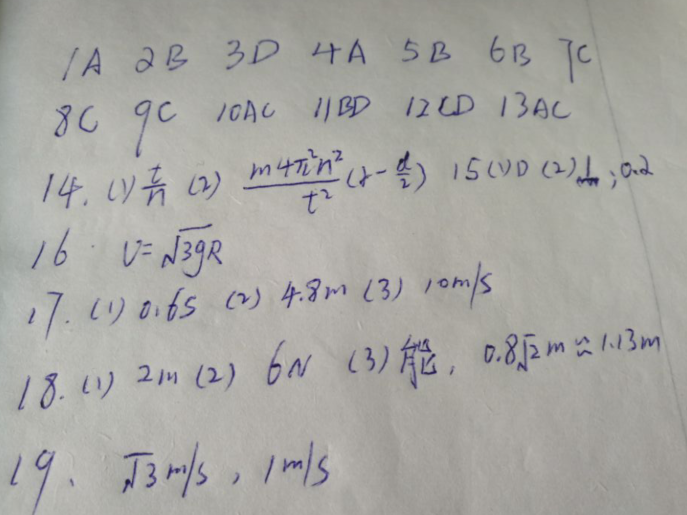 1A 2B 3D 4A 5B 6B 7C
8C 9C 10AC 11BD 12CD 13AC
14. (1) t/n (2) m4π²n²/t² (r-d/2) 15(1)D (2) ; 0.2
16 V=√3gR
17. (1) 0.6s (2) 4.8m (3) 10m/s
18. (1) 2m (2) 6N (3) 能, 0.8√2m≈1.13m
19. √3m/s, 1m/s